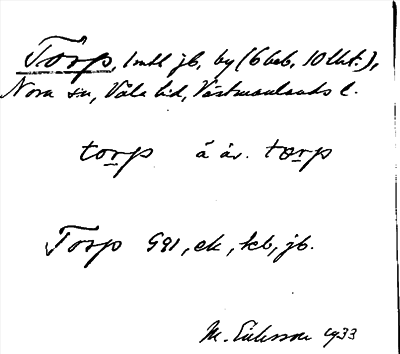 Torp, 1 mtl jb, by (6 beb, 10 lht.),
Nora sn, Våla hd, Västmanlands l.
torp å äv. tœrp
Torp GEI, ek, kb, jb.
M. Eriksson 1933